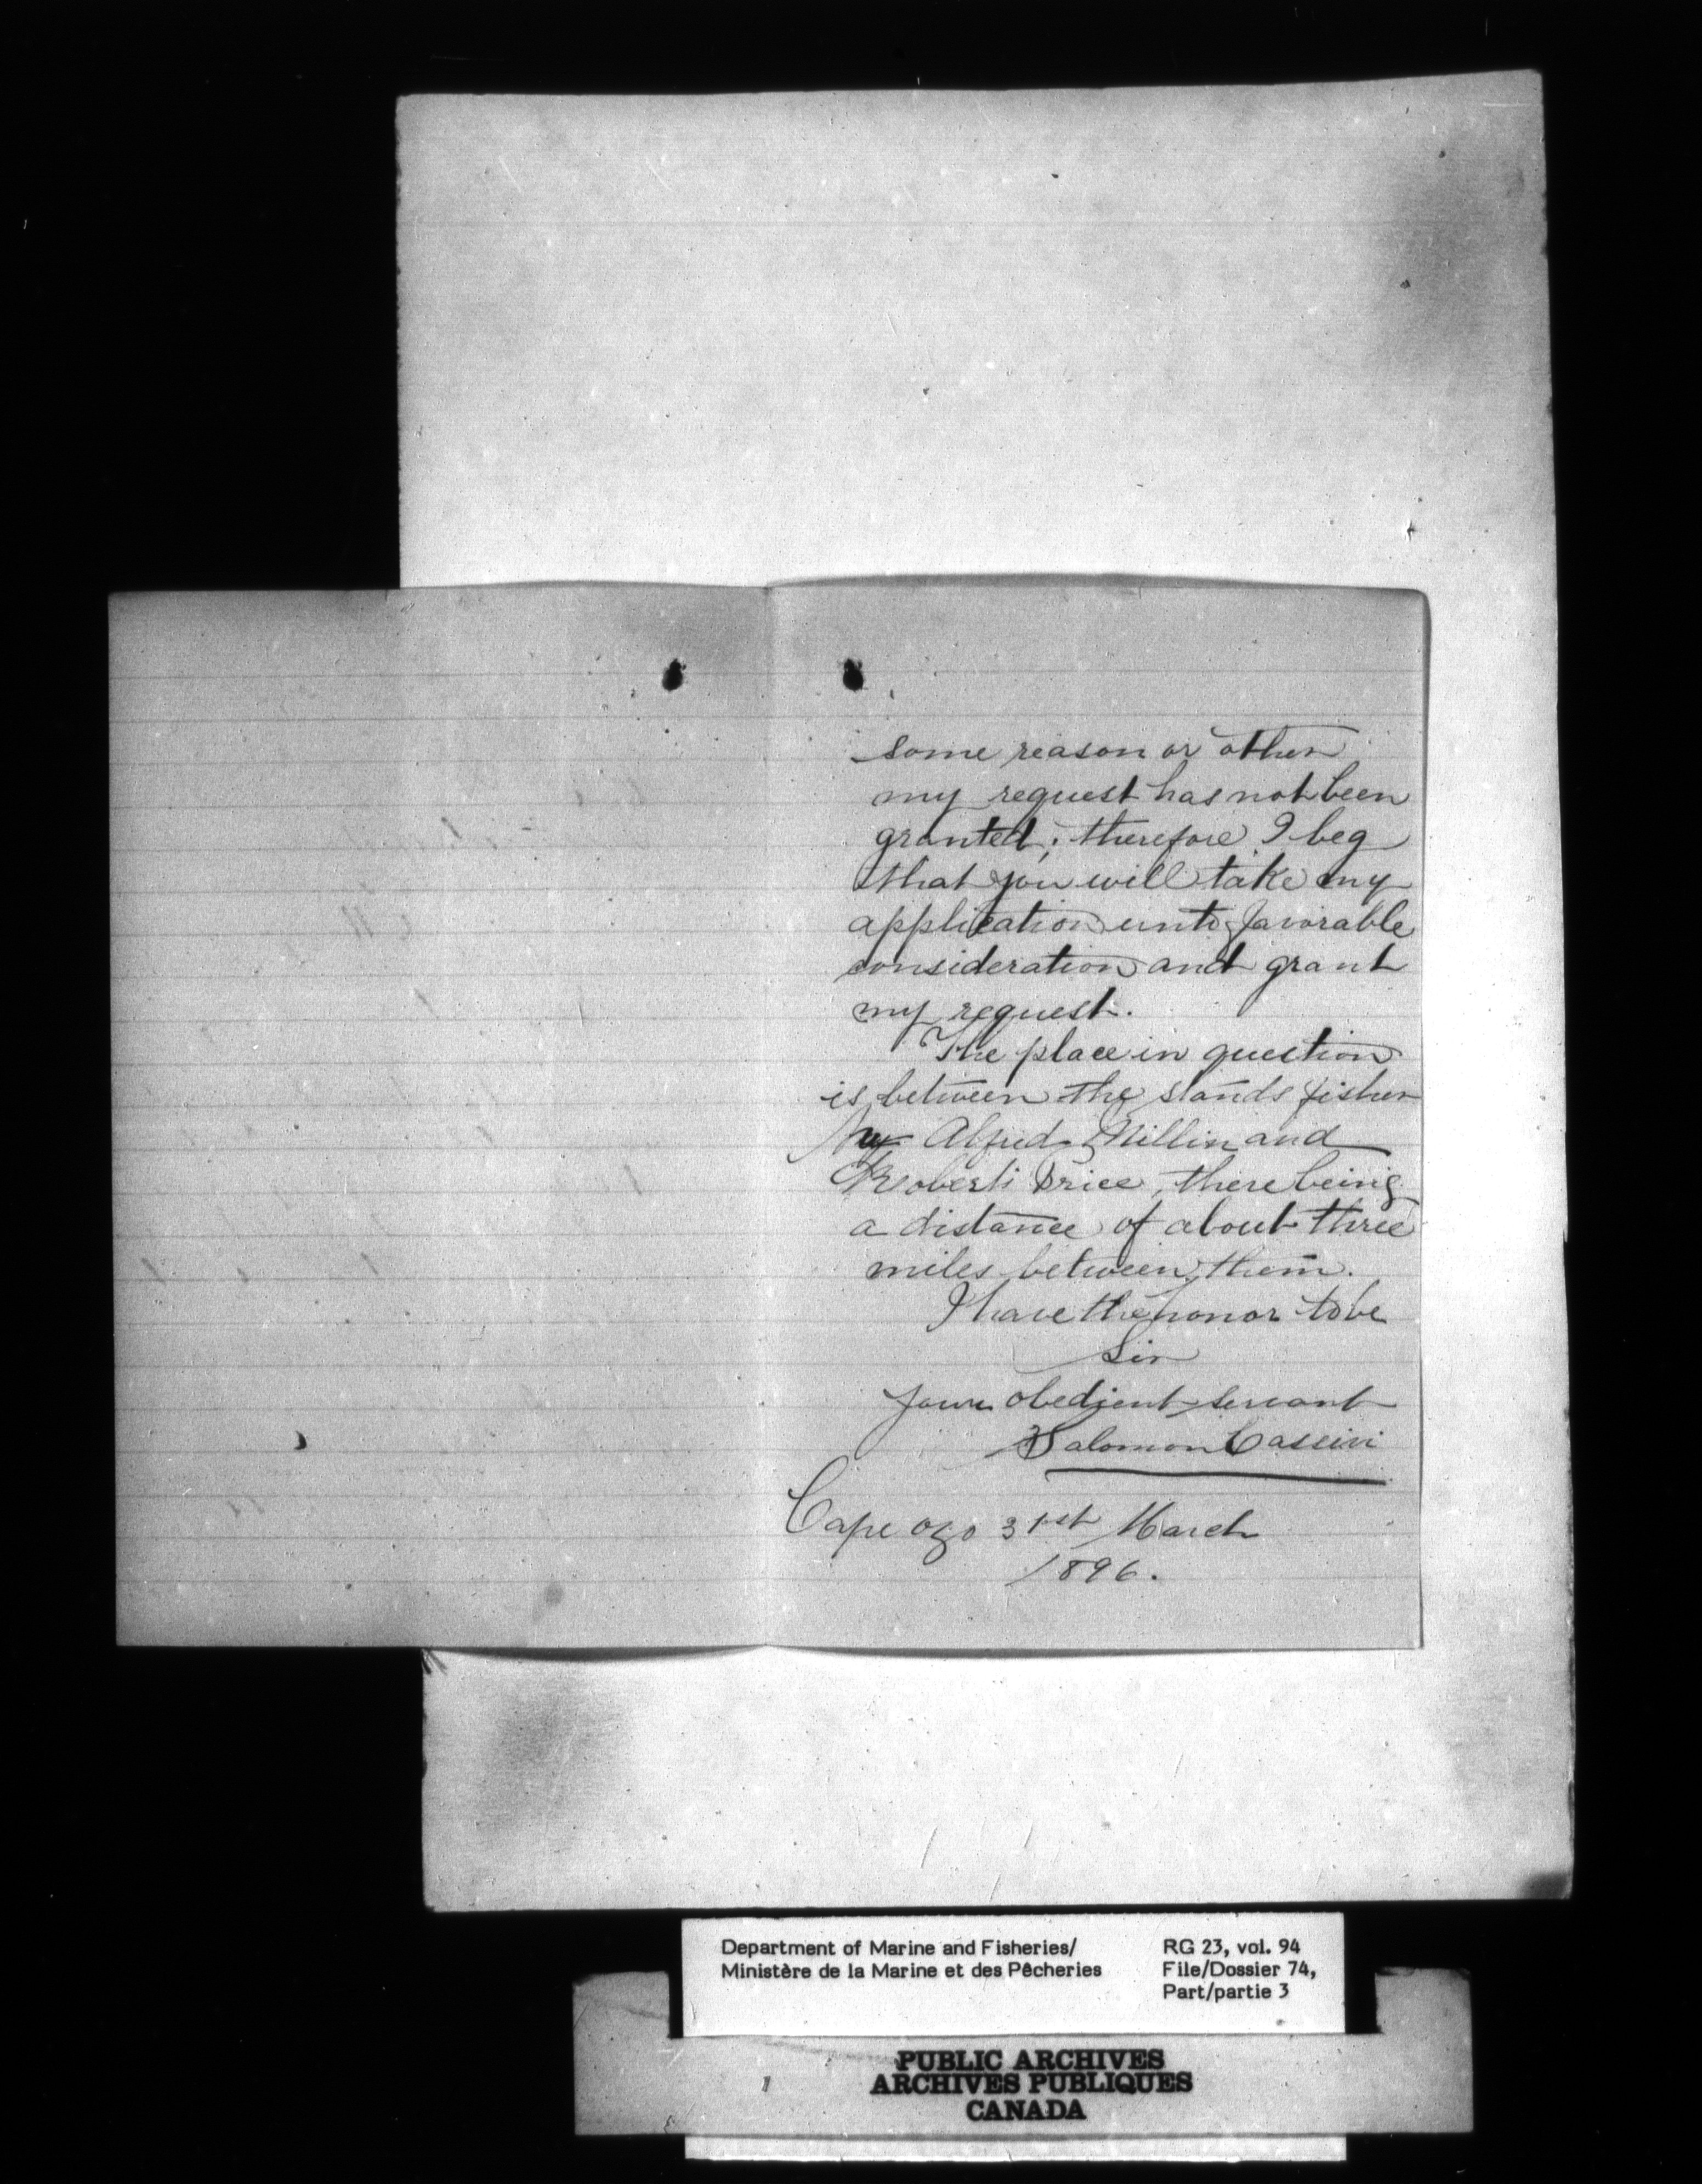 some reason or other
my request has not been
granted; therefore I beg
that you will take my
application unto favorable
consideration and grant
my request.
The place in question
is between the stands fisher
by Alfred Millin and
Robert Price, there being
a distance of about three
miles between them.
I have the honor to be
Sir
Your obedient servant
Salomon Cassivi
Cape Ozo 31st March
1896.
Department of Marine and Fisheries/
Ministère de la Marine et des Pêcheries
RG 23, vol. 94
File/Dossier 74,
Part/partie 3
PUBLIC ARCHIVES
ARCHIVES PUBLIQUES
CANADA